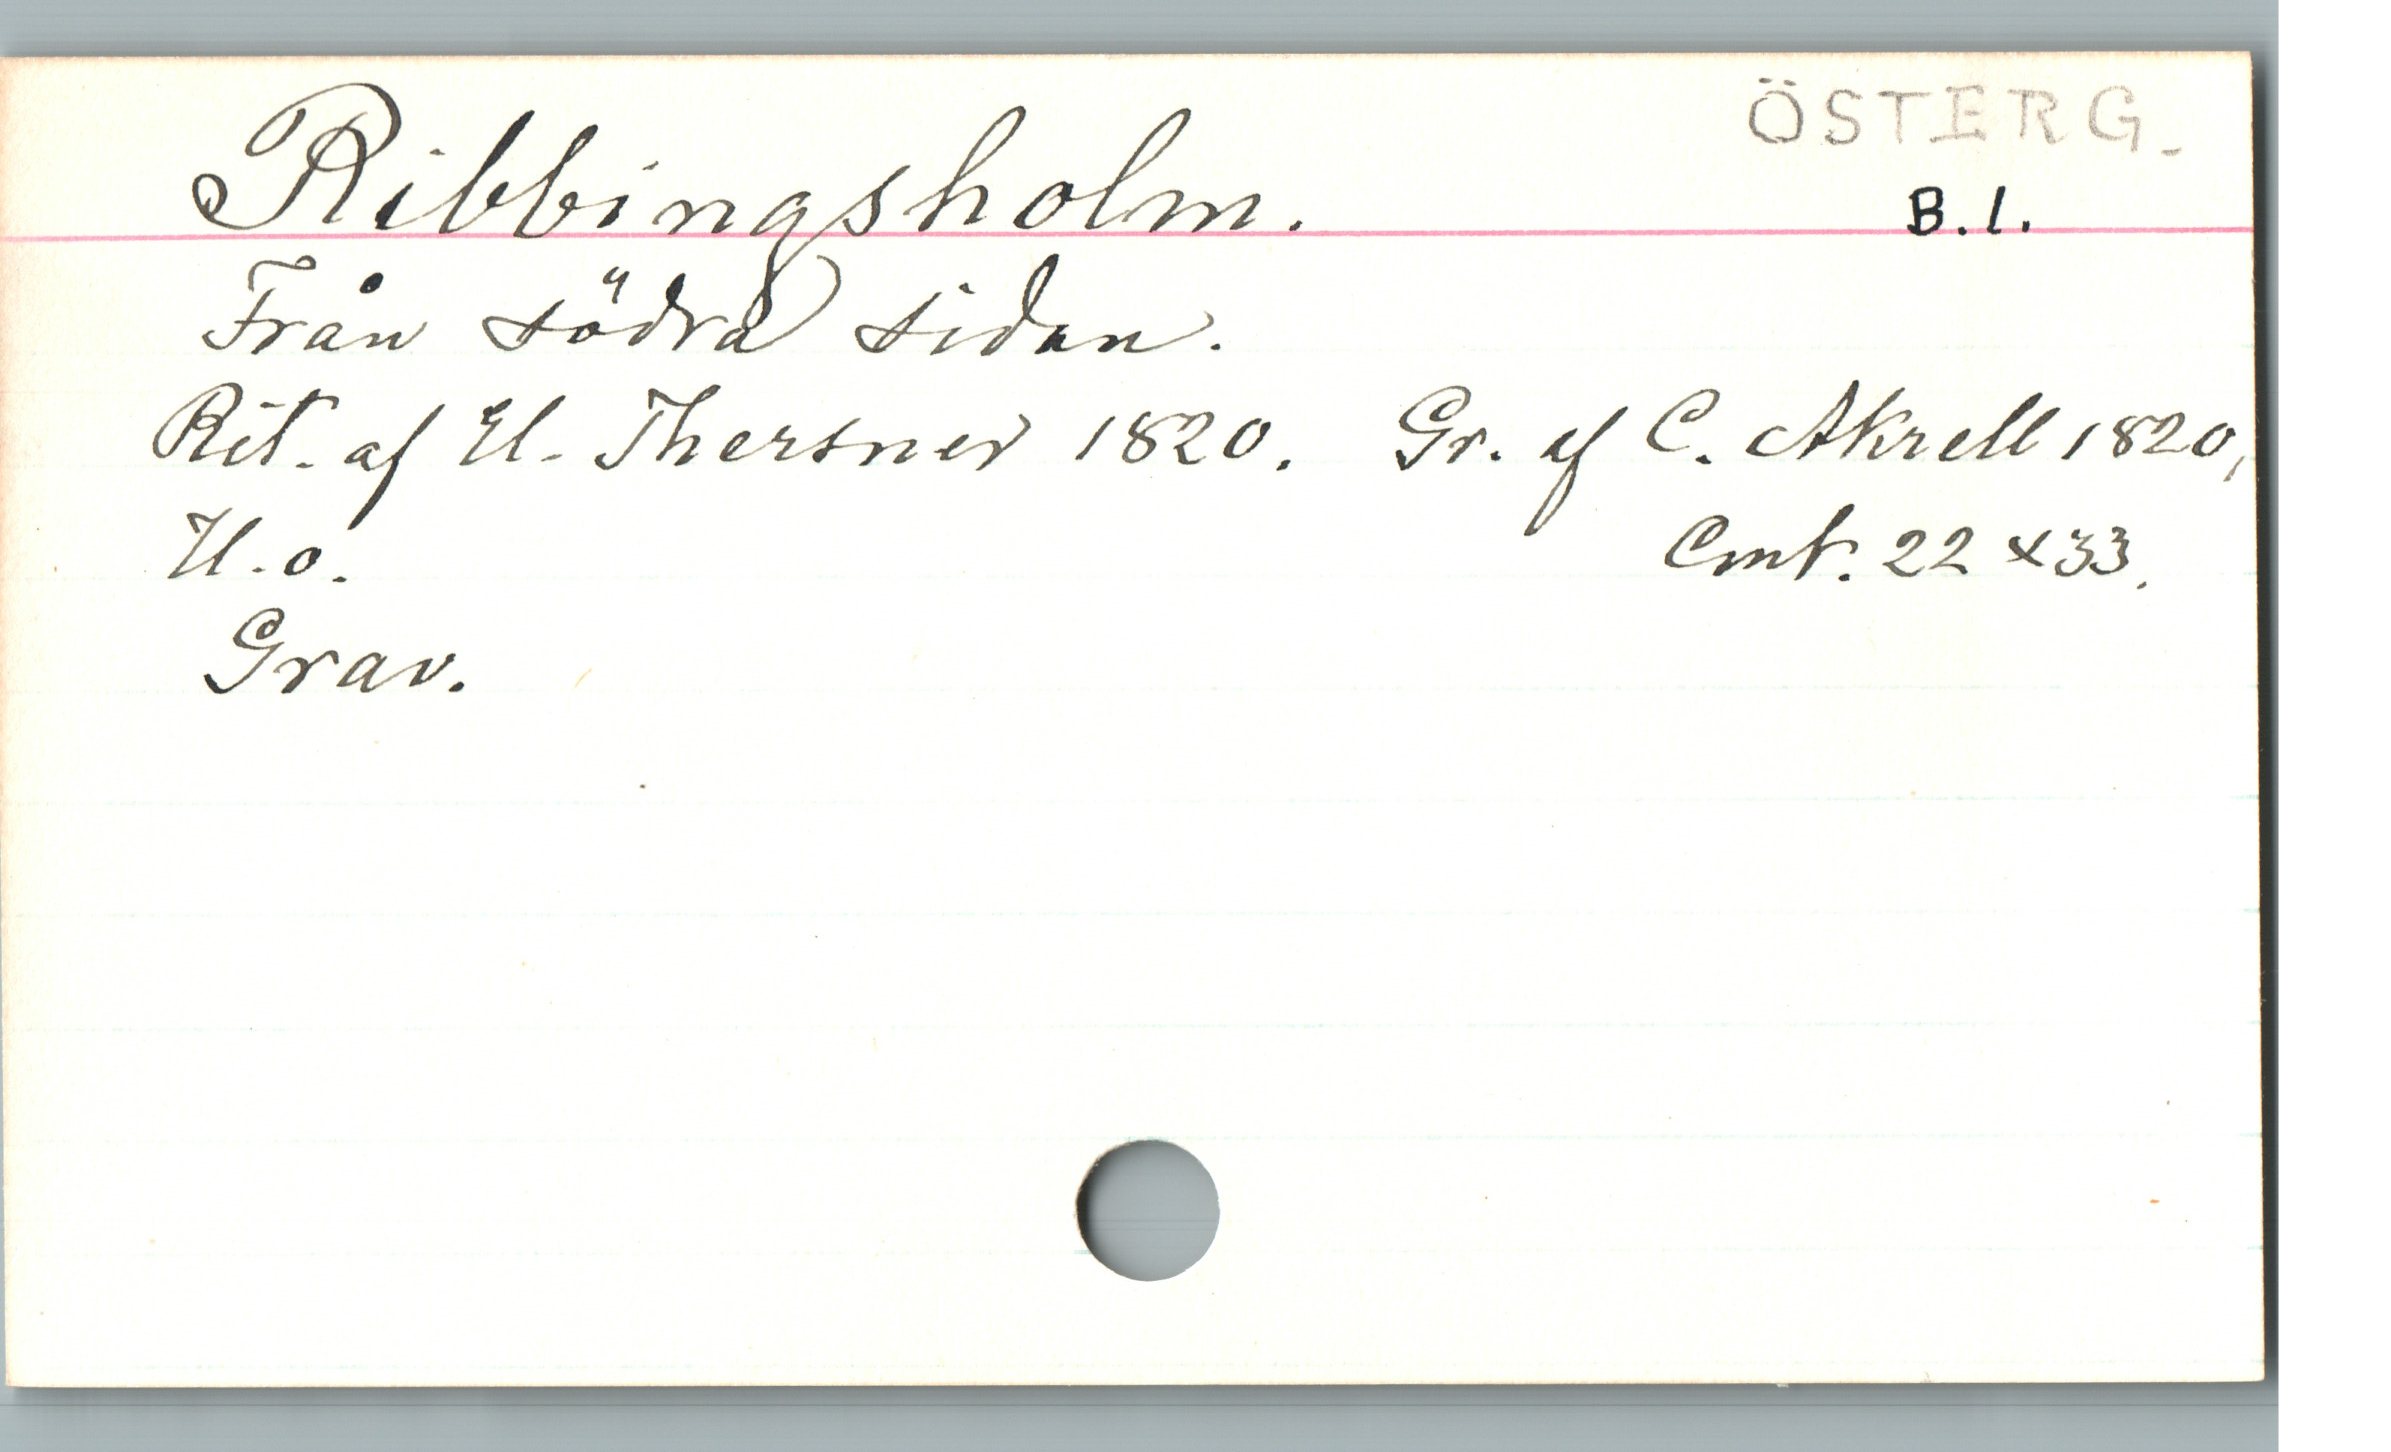 ÖSTERG.
Ribbingsholm. B.1.
Från södra sidan.
Rit. af U. Thersner 1820. Gr. af C. Akrell 1820,
U.o. Cmt. 22 x 33.
Grav.